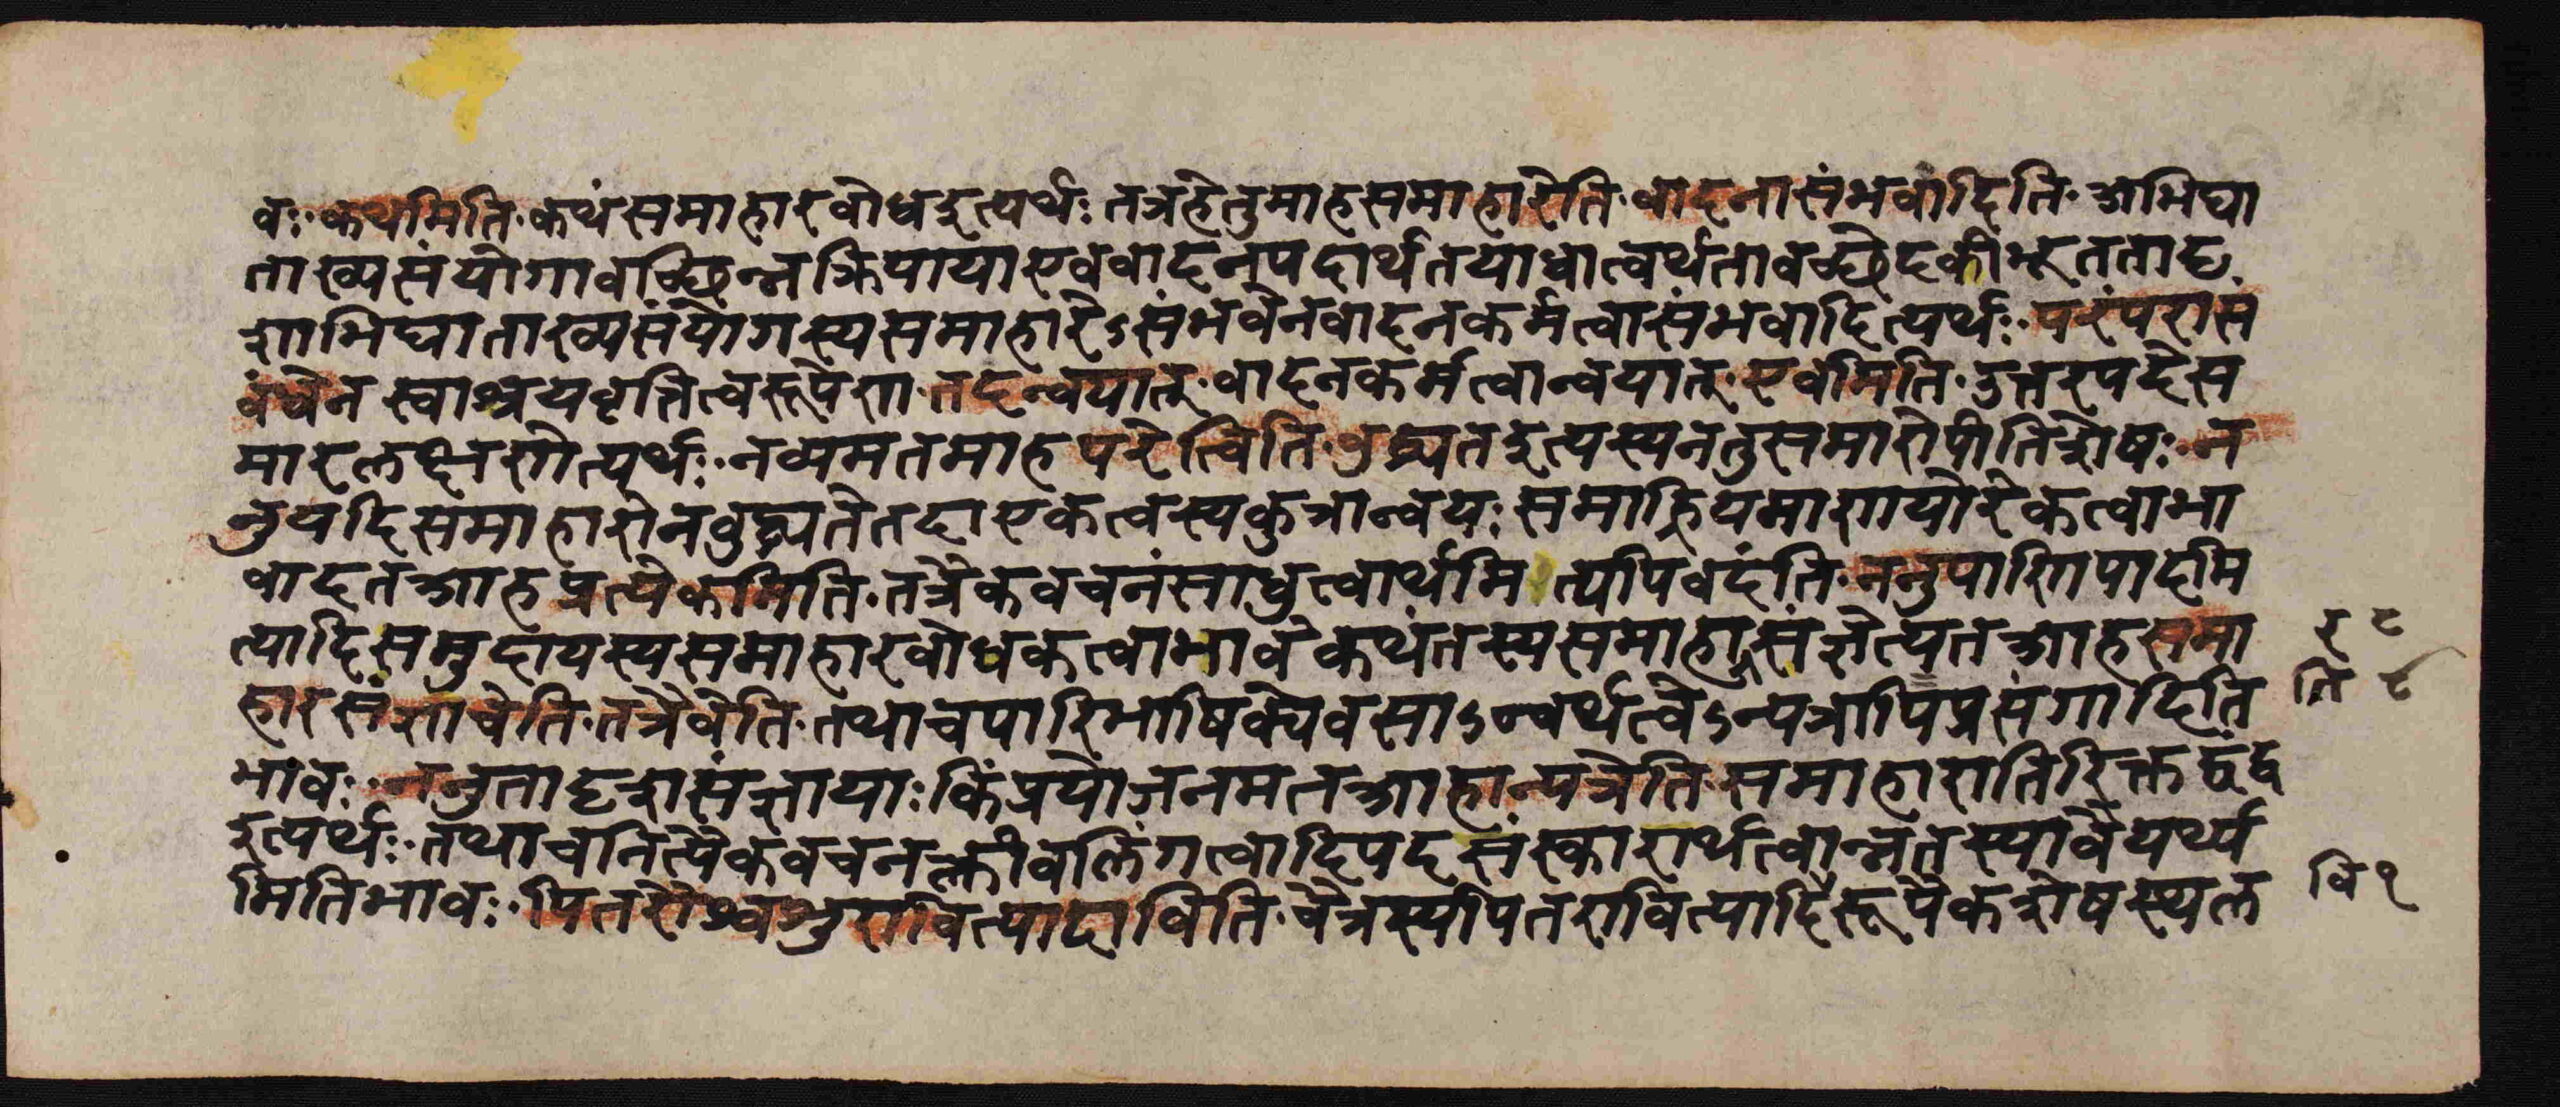 वः कथमिति कथं समाहारबोध इत्यर्थः तत्र हेतुमाह समाहारेति वादनासंभवादिति अभिघा
ताख्यसंयोगावच्छिन्नक्रियाया एव वादनपदार्थतया धात्वर्थतावच्छेदकीभूततादृ
शाभिघाताख्यसंयोगस्य समाहारेऽसंभवेन वादनकर्मत्वासंभवादित्यर्थः परंपरासं
बंधेन स्वाश्रयवृत्तित्वरूपेण तदन्वयात् वादनकर्मत्वान्वयात् एवमिति उत्तरपदे स
मारलक्षणेत्यर्थः नव्यमतमाह परे त्विति बुद्ध्यत इत्यस्य न तु समारोपीति शेषः न
नु यदि समाहारो न बुद्ध्यते तदा एकत्वस्य कुत्रान्वयः समाह्रियमाणयोरेकत्वाभा
वादत आह प्रत्येकमिति तत्रैकवचनं साधुत्वार्थमि त्यपि वदंति ननु पाणिपादमि
त्यादिसमुदायस्य समाहारबोधकत्वाभावे कथं तस्य समाहासंज्ञेत्यत आह समा
र ८
हारसंज्ञा चेति तत्रैवेति तथा च पारिभाषिक्येव साऽन्वर्थत्वेऽन्यत्रापि प्रसंगादिति
ति ८
भावः ननु तादृशसंज्ञायाः किं प्रयोजनमत आहान्यत्रेति समाहारातिरिक्तद्वंद्व
इत्यर्थः तथा च नित्यैकवचनक्लीवलिंगत्वादिपदसंस्कारार्थत्वान्न तस्यावैयर्थ्य
मिति भावः पितरौ श्वशुरावित्यादाविति चैत्रस्य पितरावित्यादिरूपैकशेषस्थल
वि १